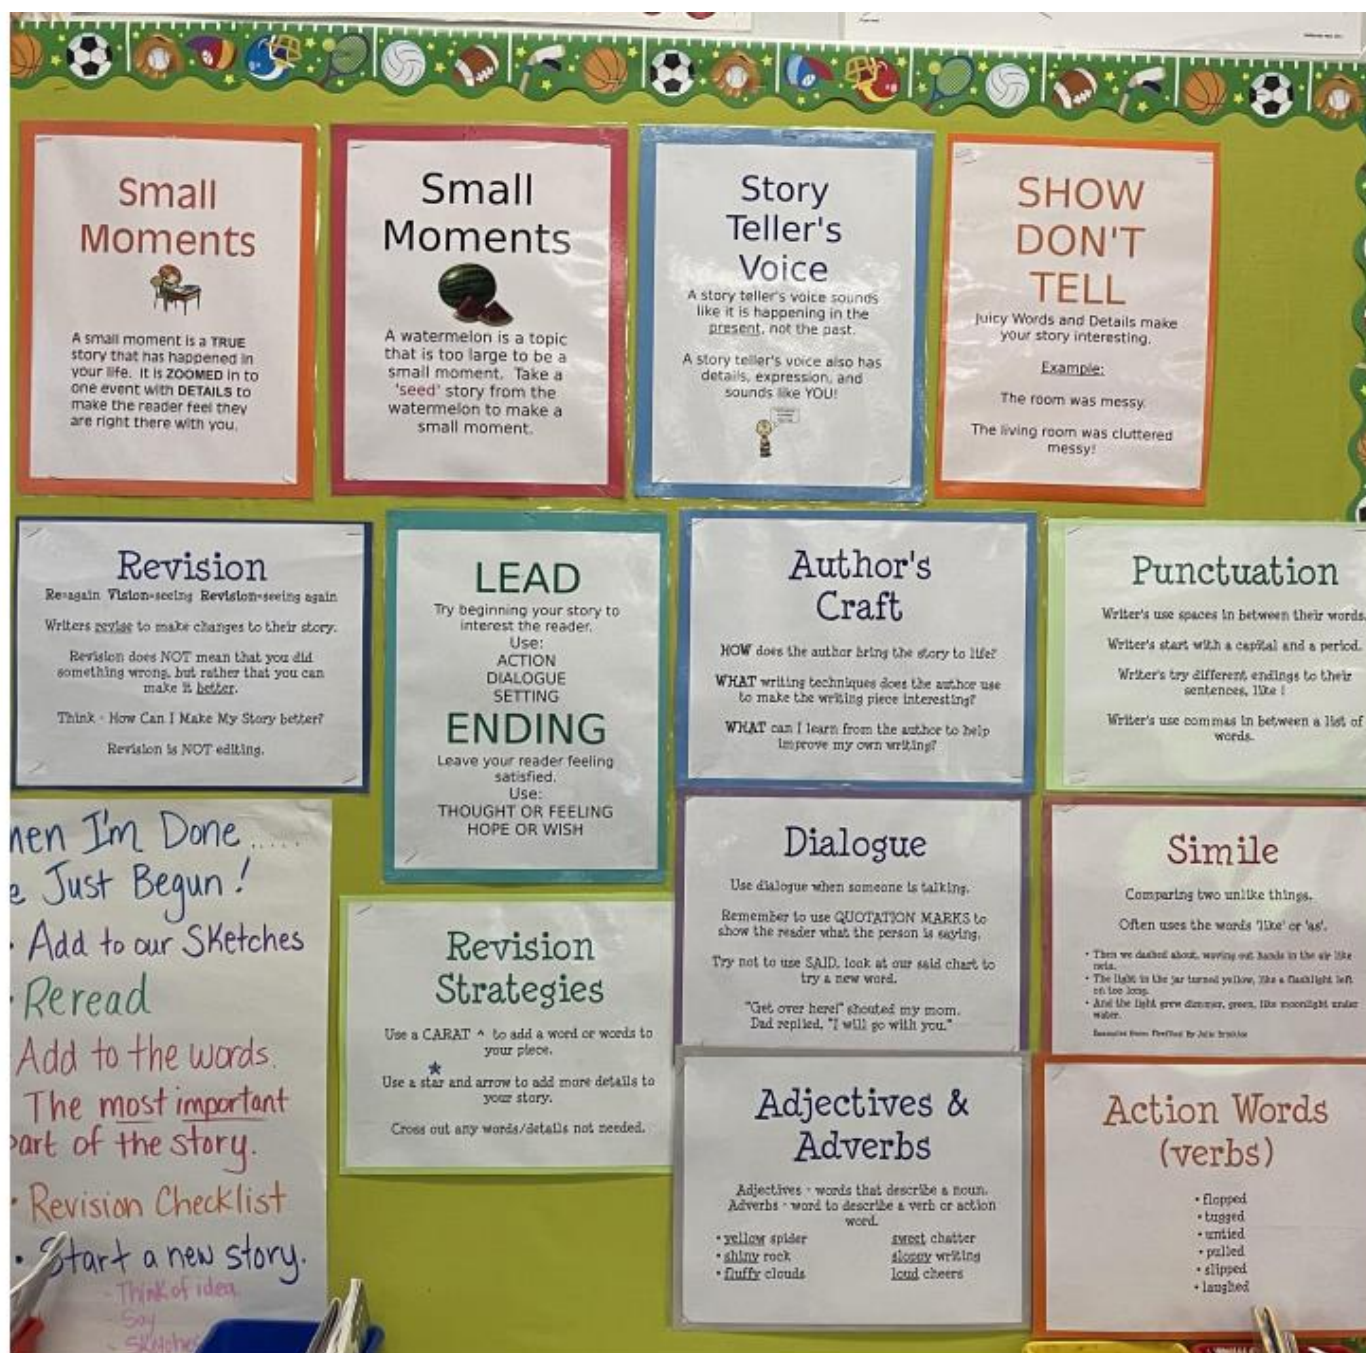 Small
Moments
A small moment is a TRUE
story that has happened in
your life. It is ZOOMED in to
one event with DETAILS to
make the reader feel they
are right there with you.
Small
Moments
A watermelon is a topic
that is too large to be a
small moment. Take a
'seed' story from the
watermelon to make a
small moment.
Story
Teller's
Voice
A story teller's voice sounds
like it is happening in the
present, not the past.
A story teller's voice also has
details, expression, and
sounds like YOU!
SHOW
DON'T
TELL
Juicy Words and Details make
your story interesting.
Example:
The room was messy.
The living room was cluttered
messy!
Revision
Re=again Vision=seeing Revision=seeing again
Writers revise to make changes to their story.
Revision does NOT mean that you did
something wrong, but rather that you can
make it better.
Think - How Can I Make My Story better?
Revision is NOT editing.
LEAD
Try beginning your story to
interest the reader.
Use:
ACTION
DIALOGUE
SETTING
ENDING
Leave your reader feeling
satisfied.
Use:
THOUGHT OR FEELING
HOPE OR WISH
Author's
Craft
HOW does the author bring the story to life?
WHAT writing techniques does the author use
to make the writing piece interesting?
WHAT can I learn from the author to help
improve my own writing?
Punctuation
Writer's use spaces in between their words.
Writer's start with a capital and a period.
Writer's try different endings to their
sentences, like !
Writer's use commas in between a list of
words.
hen I'm Done.....
e Just Begun!
• Add to our Sketches
• Reread
Add to the words.
The most important
part of the story.
• Revision Checklist
• Start a new story.
- Think of idea
- Say
- Sketches
Revision
Strategies
Use a CARAT ^ to add a word or words to
your piece.
Use a star and arrow to add more details to
your story.
Cross out any words/details not needed.
Dialogue
Use dialogue when someone is talking.
Remember to use QUOTATION MARKS to
show the reader what the person is saying.
Try not to use SAID, look at our said chart to
try a new word.
"Get over here!" shouted my mom.
Dad replied, "I will go with you."
Simile
Comparing two unlike things.
Often uses the words 'like' or 'as'.
• Then we dashed about, waving our hands in the air like
nets.
• The light in the jar turned yellow, like a flashlight left
on too long.
• And the light grew dimmer, green, like moonlight under
water.
Adjectives &
Adverbs
Adjectives - words that describe a noun.
Adverbs - word to describe a verb or action
word.
• yellow spider sweet chatter
• shiny rock sloppy writing
• fluffy clouds loud cheers
Action Words
(verbs)
• flopped
• tugged
• untied
• pulled
• slipped
• laughed